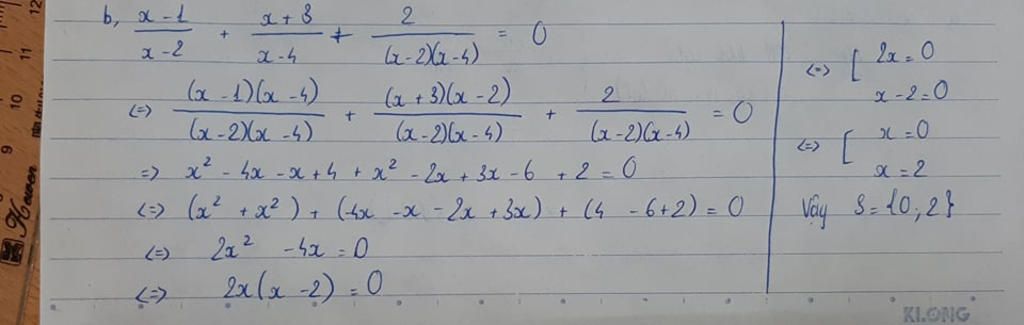 b, \frac{x-1}{x-2} + \frac{x+3}{x-4} + \frac{2}{(x-2)(x-4)} = 0
<=> \frac{(x-1)(x-4)}{(x-2)(x-4)} + \frac{(x+3)(x-2)}{(x-2)(x-4)} + \frac{2}{(x-2)(x-4)} = 0
=> x² - 4x - x + 4 + x² - 2x + 3x - 6 + 2 = 0
<=> (x² + x²) + (-4x - x - 2x + 3x) + (4 - 6 + 2) = 0
<=> 2x² - 4x = 0
<=> 2x(x - 2) = 0
<=> [ 2x = 0
x - 2 = 0
<=> [ x = 0
x = 2
Vậy S = {0; 2}
KLONG
9 10 11 12